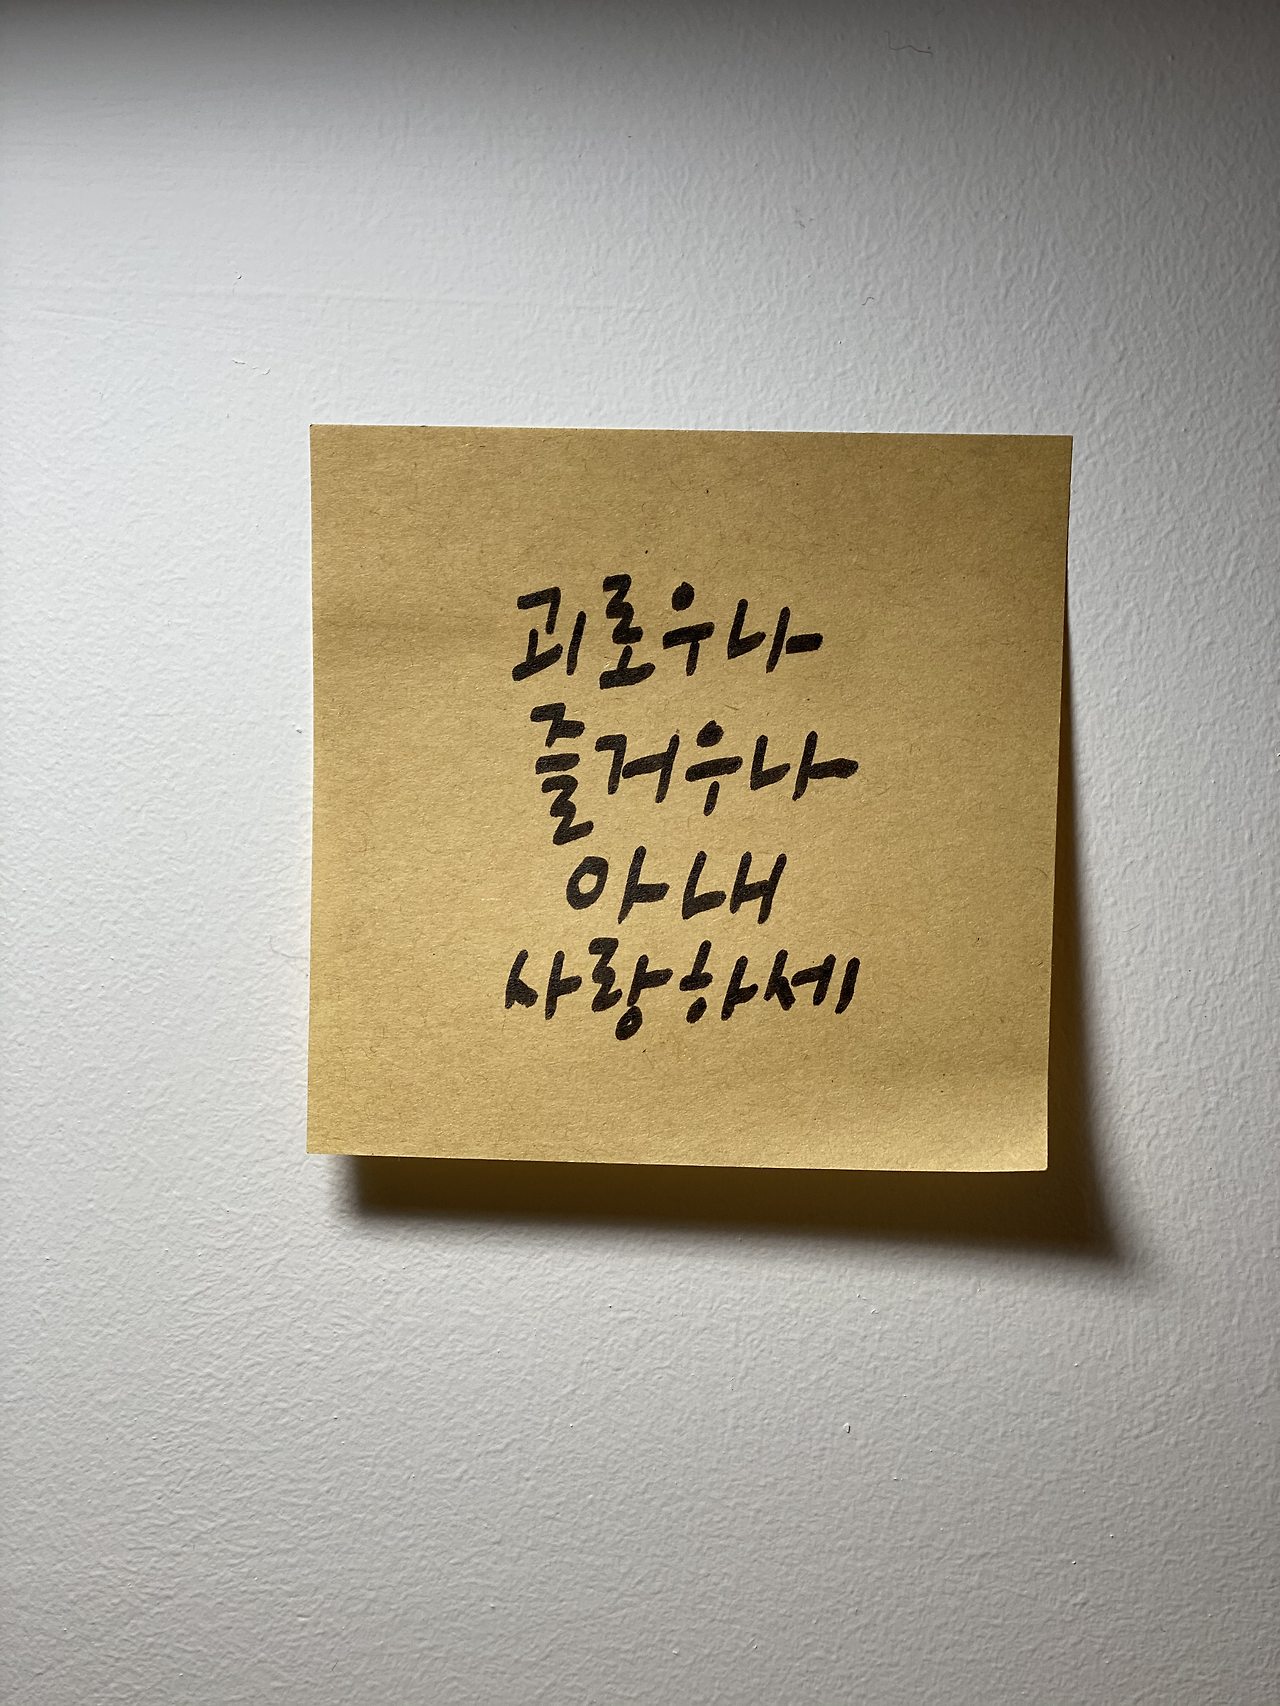 괴로우나
즐거우나
아내
사랑하세